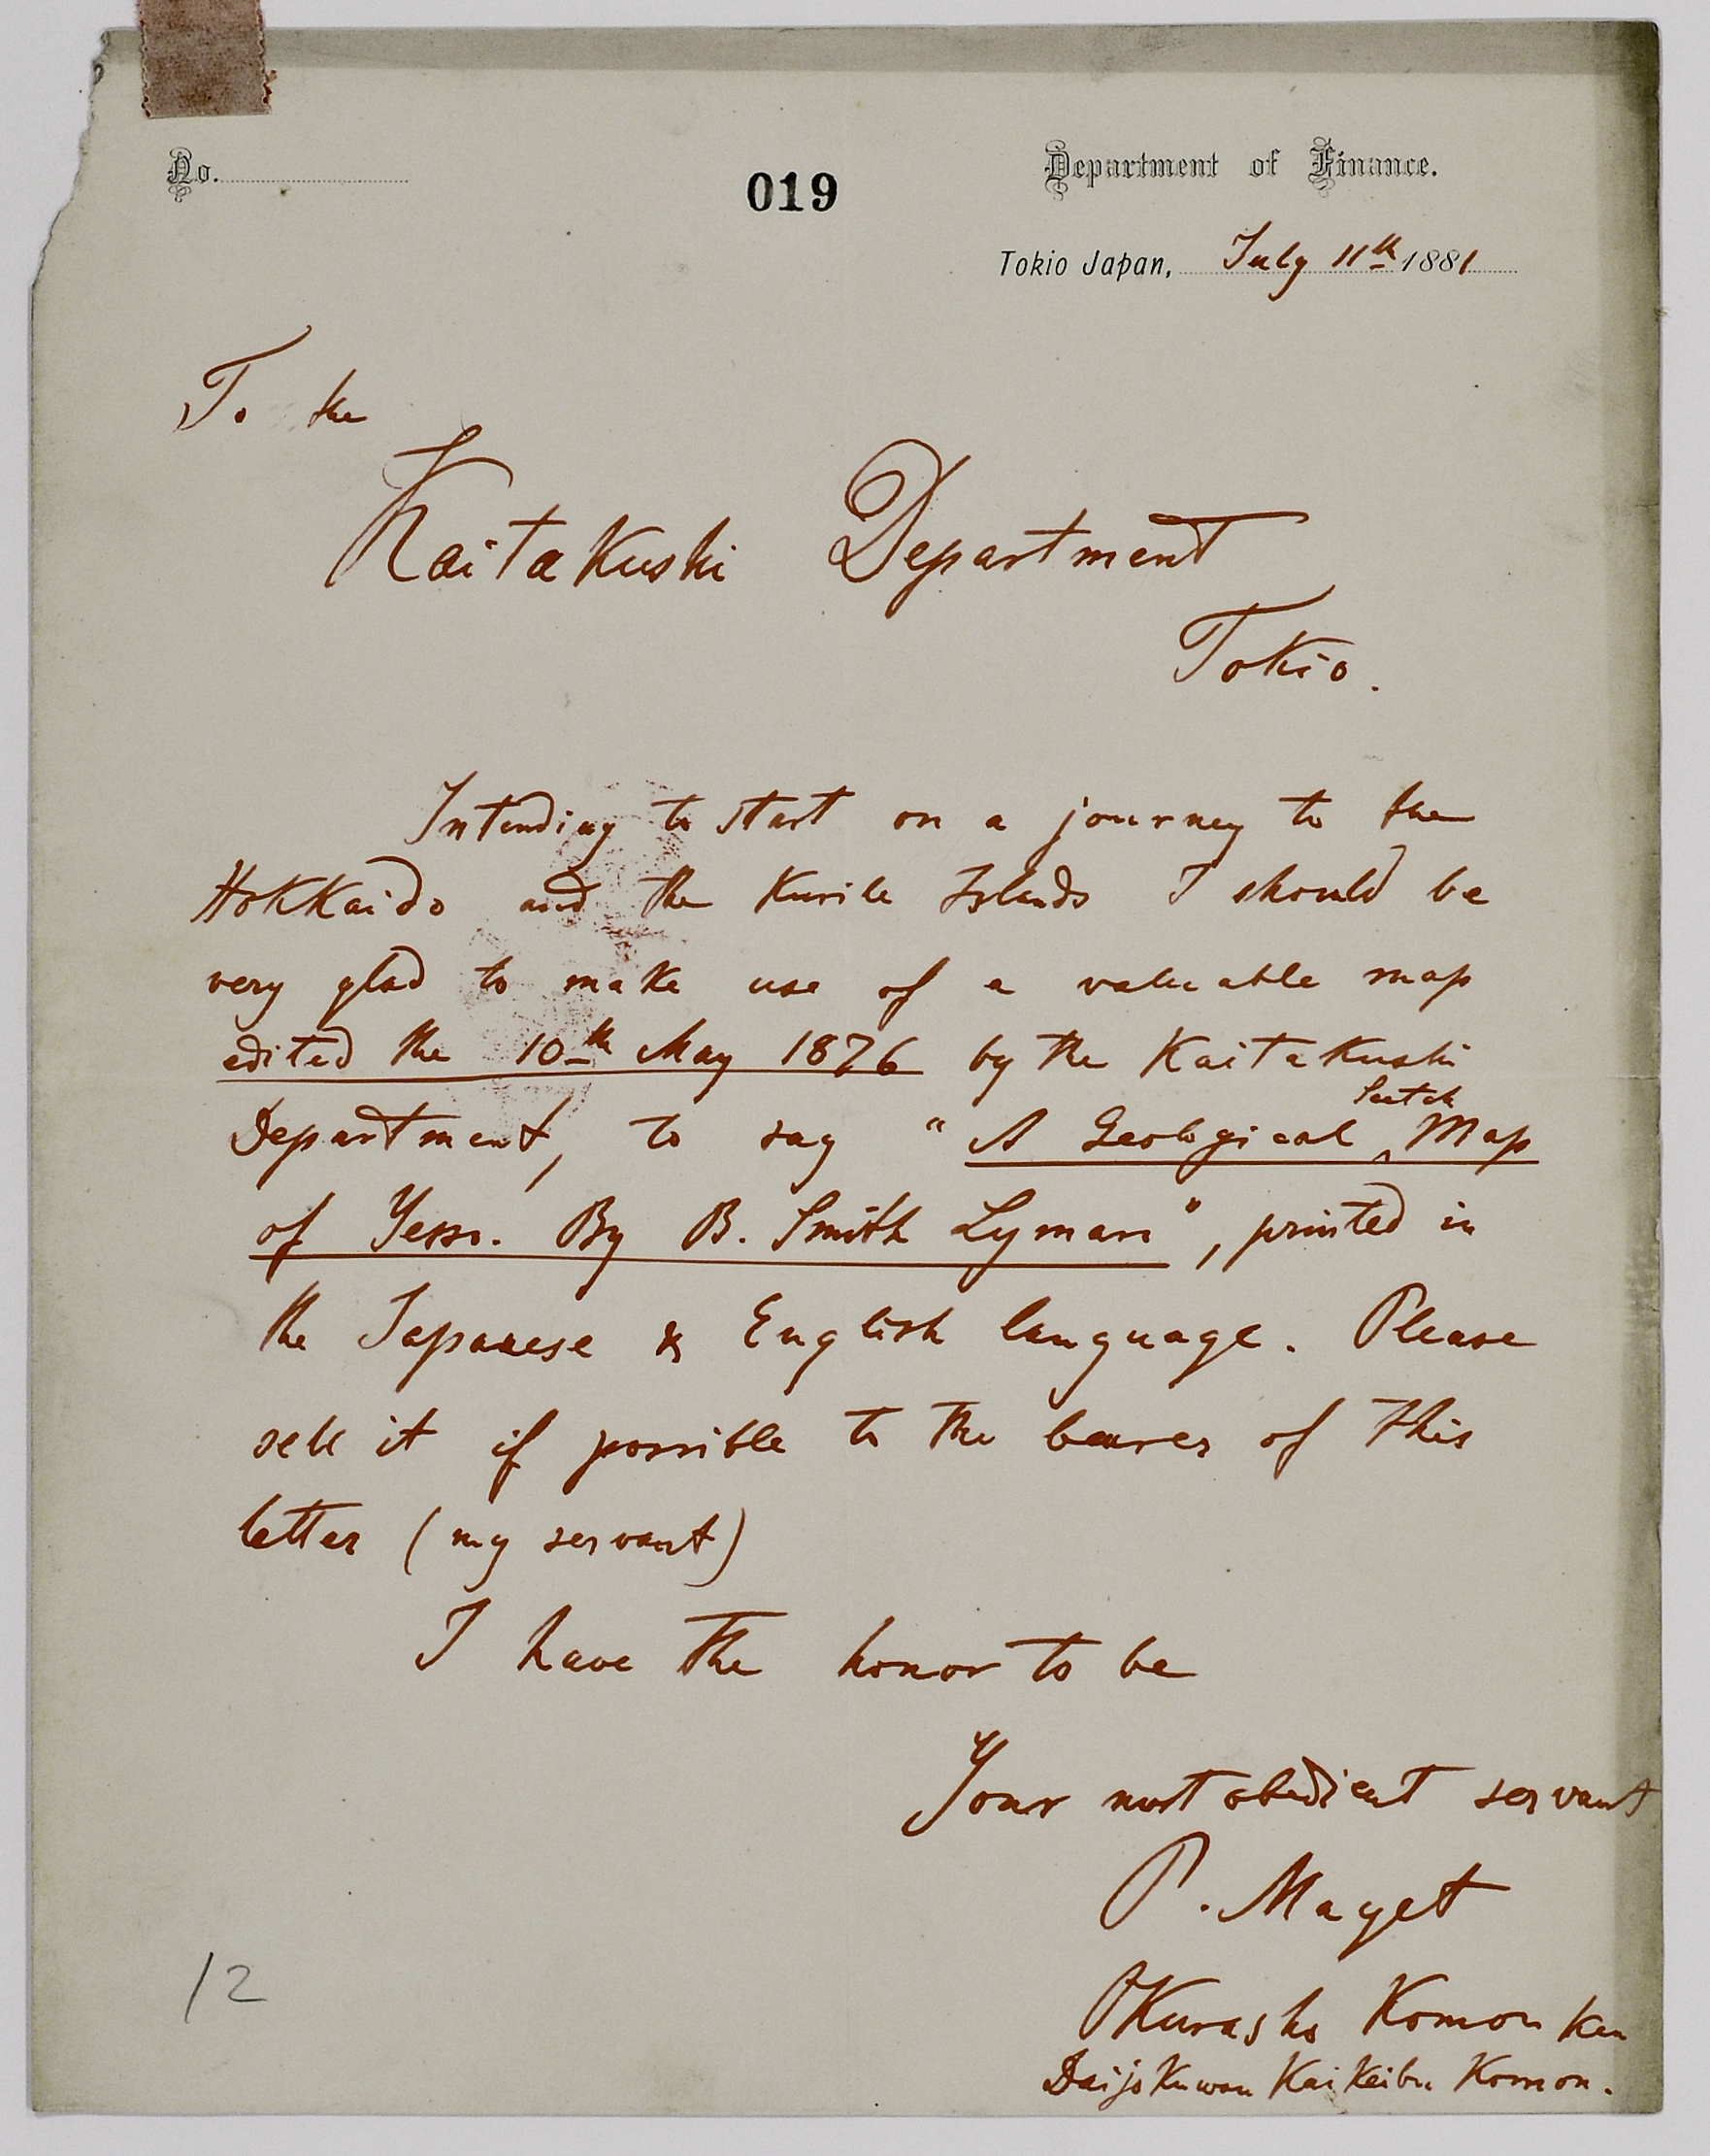 No.
019
Department of Finance.
Tokio Japan, July 11th 1881
To the
Kaitakushi Department
Tokio.
Intending to start on a journey to the
Hokkaido and the Kurile Islands I should be
very glad to make use of a valuable map
edited the 10th May 1876 by the Kaitakushi
Department, to say "A Geological Sketch Map
of Yesso. By B. Smith Lyman", printed in
the Japanese & English language. Please
sell it if possible to the bearer of this
letter (my servant)
I have the honor to be
Your most obedient servant
P. Mayet
Okurasho Komon Ken
Daijokuwan Kaikeibu Komon.
12